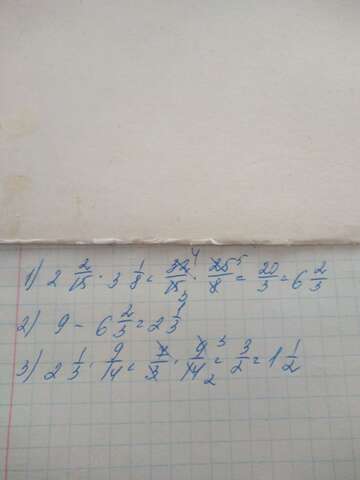 1) 2 2/15 · 3 1/8 = 32/15 · 25/8 = 20/3 = 6 2/3
2) 9 - 6 2/3 = 2 1/3
3) 2 1/3 · 9/14 = 7/3 · 9/14 = 3/2 = 1 1/2